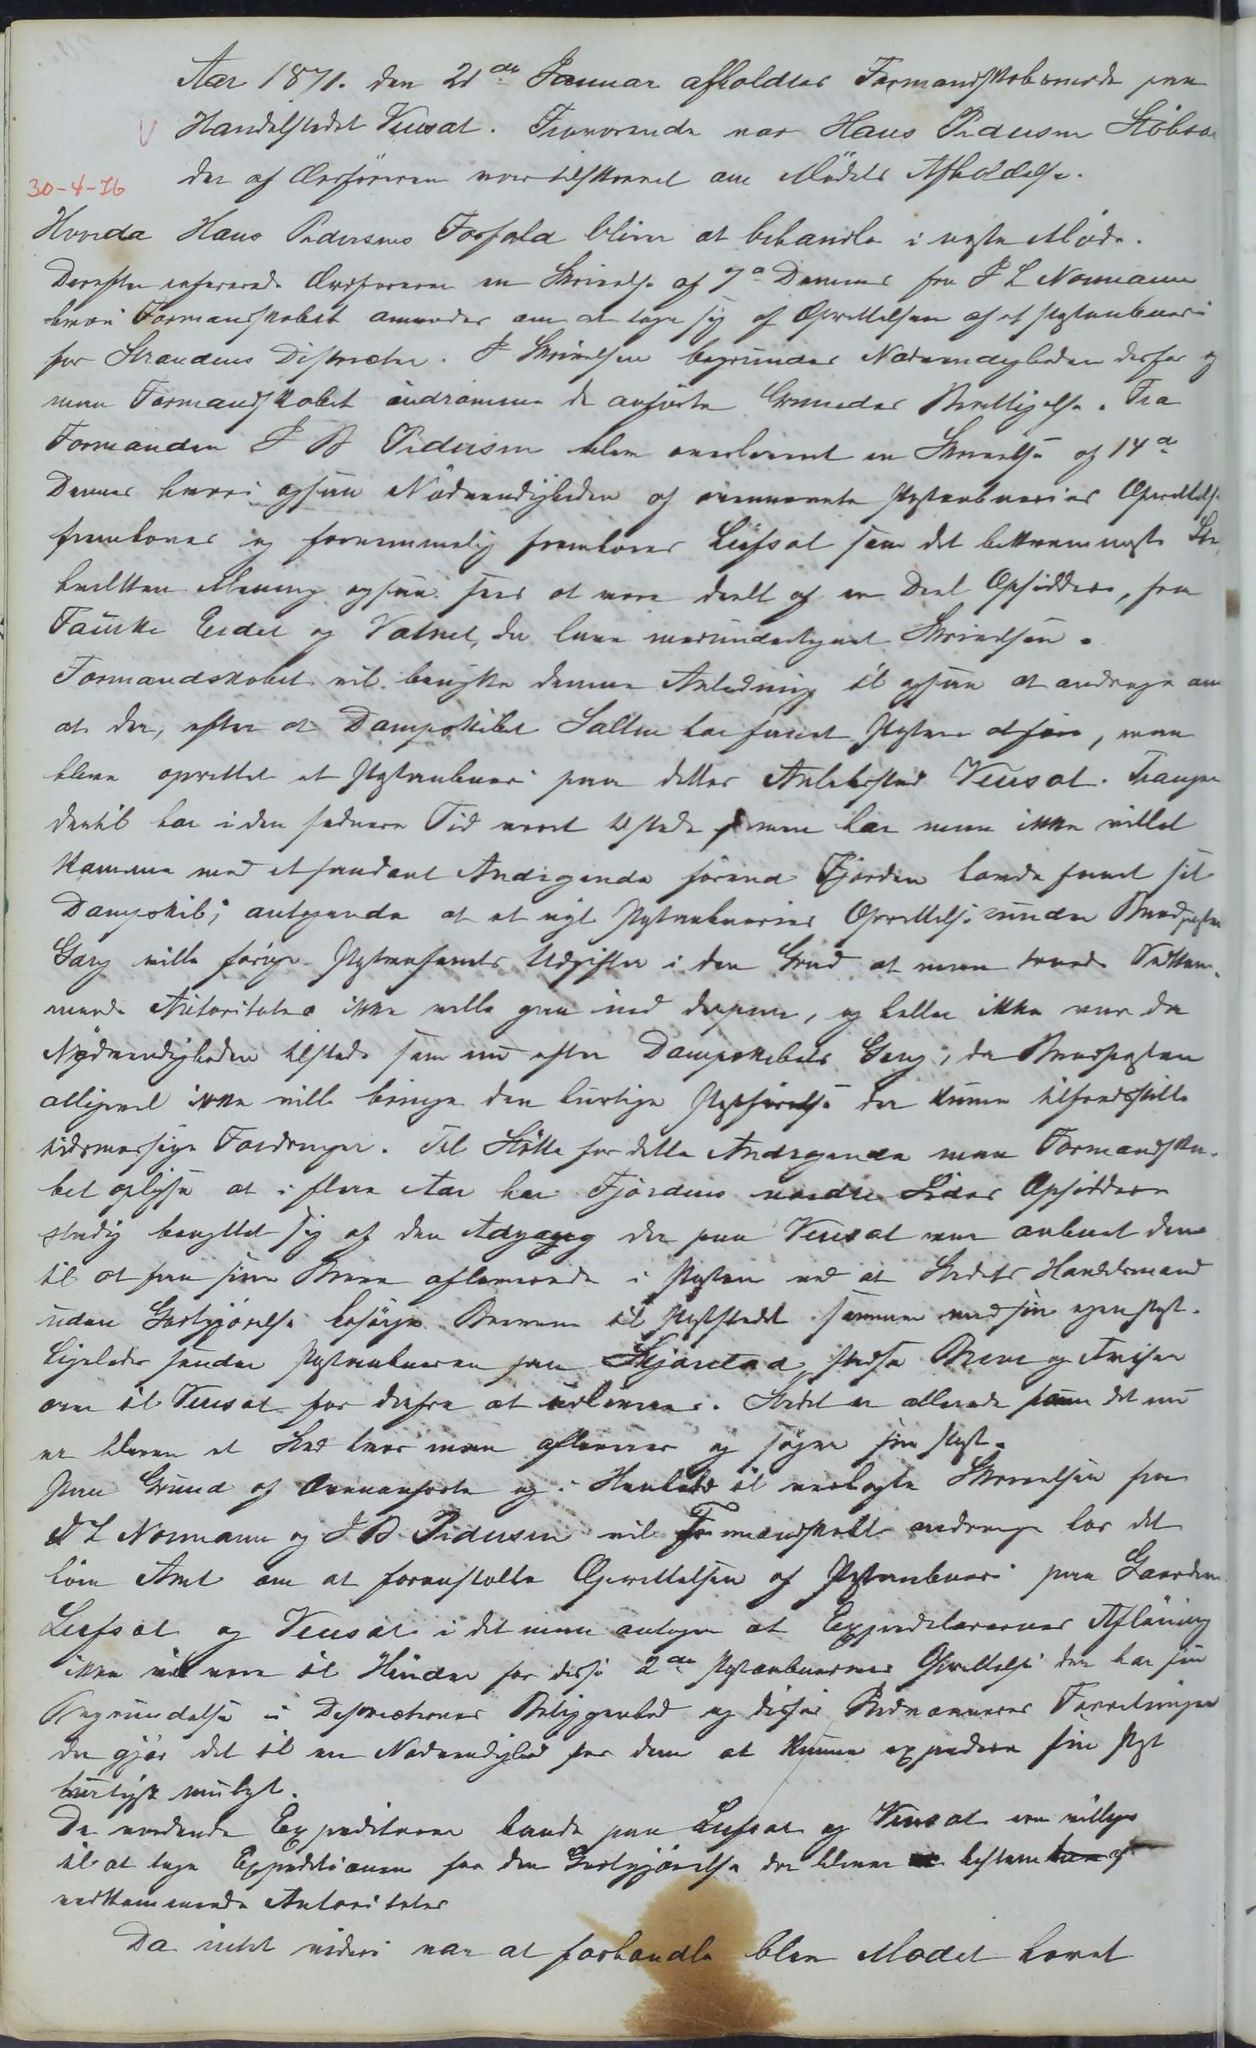 Aar 1871. den 21de Januar afholdtes Formandskabsmøde paa
Handelstedet Vensat. Fraværende var Hans Pedersen
30-4-76
der af Ordføreren var tilskrevet om Mødets Afholdelse.
Hvorda Hans Pedersens Forfald bliver at behandle i neste Møde.
Derefter refererede Ordføreren en Skrivelse af 7de Dennes fra J L Normann
hvori Formandskabet anmodes om at tage sig af Oprettelsen af et Postaabneri
for Strandens Districter. I Skrivelsen begrundes Nødvendigheden derfor og
maa Formandskabet indrømme de anførte Grundes Berettigelse. Fra
Formanden J B Pedersen blev overleveret en Skrivelse af 14de
Dennes hvori ogsaa Nødvendigheden af ovennevnte Postaabneries Oprettelse
fremhæves og fornemmelig fremhæves Løfsat som det bekvemmeste
hvilken Mening ogsaa sees at være deelt af en Deel Opsiddere, fra
Fauske Eidet og Vatnet, der have medundertegnet Skrivelsen.
Formandskabet vil benytte denne Anledning til ogsaa at andrage om
at der, efter at Dampskibet Salten har faaet Posten, maa
blive oprettet et Postaabneri paa dettes Anløbssted Vensat. Trangen
dertil har i den senere Tid været tilstede men har man ikke villet
komme med et saadant Andragende førend Fjorden havde faaet sit
Dampskib; antagende at et nyt Postaabneries Oprettelse under
Gang ville forøge Postvæsenets Udgifter i den Grad at man troede Vedkom-
mende Autoriteter ikke ville gaa ind derpaa, og heller ikke var da
Nødvendigheden tilstede som nu efter Dampskibets Gang, da
alligevel ikke ville bringe den hurtige Postførelse der kunne tilfredsstille
tidsmæssige Fordringer. Til Støtte for dette Andragende maa Formandska-
bet oplyse at i flere Aar har Fjordens nordre Sides Opsiddere
stadig benyttet sig af den Adgang der paa Vensat var aabnet dem
til at faa sine Breve afleverede i Posten ved at Stedets Handelsmand
uden Godtgjørelse besørger Brevene til Poststedet sammen med sin egen Post.
Ligeledes sender Postaabneren paa Skjerstad stedse Breve og Aviser
over til Vensat for derfra at udleveres. Stedet er allerede som det nu
er bleven et Sted hvor man afleverer og søger sin Post.
Paa Grund af Ovenanførte og i Henhold til vedlagte Skrivelser fra
J L Normann og J B Pedersen vil Formandskabet andrage hos det
høie Amt om at foranstalte Oprettelsen af Postaabneri paa Gaarden
Løfsat og Vensat i det man antager at Expeditørernes Afløning
ikke vil være til Hinder for disse 2de Postaabneriers Oprettelse der har sin
Begrundelse i Districternes Beliggenhed og disses Bedrænneres Forretninger
der gjør det til en Nødvendighed for dem at kunne expedere sin Post
hurtigst muligt.
De vordende Expeditører baade paa Løfsat og Vensat ere villige
til at tage Expeditionen for den Godtgjørelse der bliver bestemt af
vedkommende Autoriteter
Da intet videre var at forhandle blev Mødet hævet